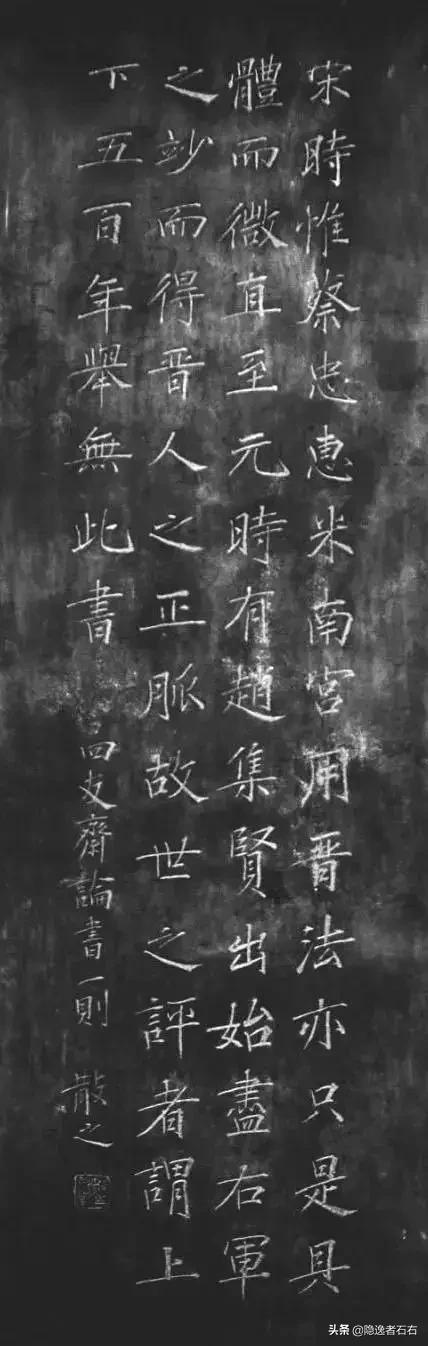 宋時惟蔡忠惠米南宮用晋法亦只是具
體而微直至元時有趙集賢出始盡右軍
之妙而得晋人之正脈故世之評者謂上
下五百年舉無此書
四友齋論書一則 散之
头条 @隐逸者石右